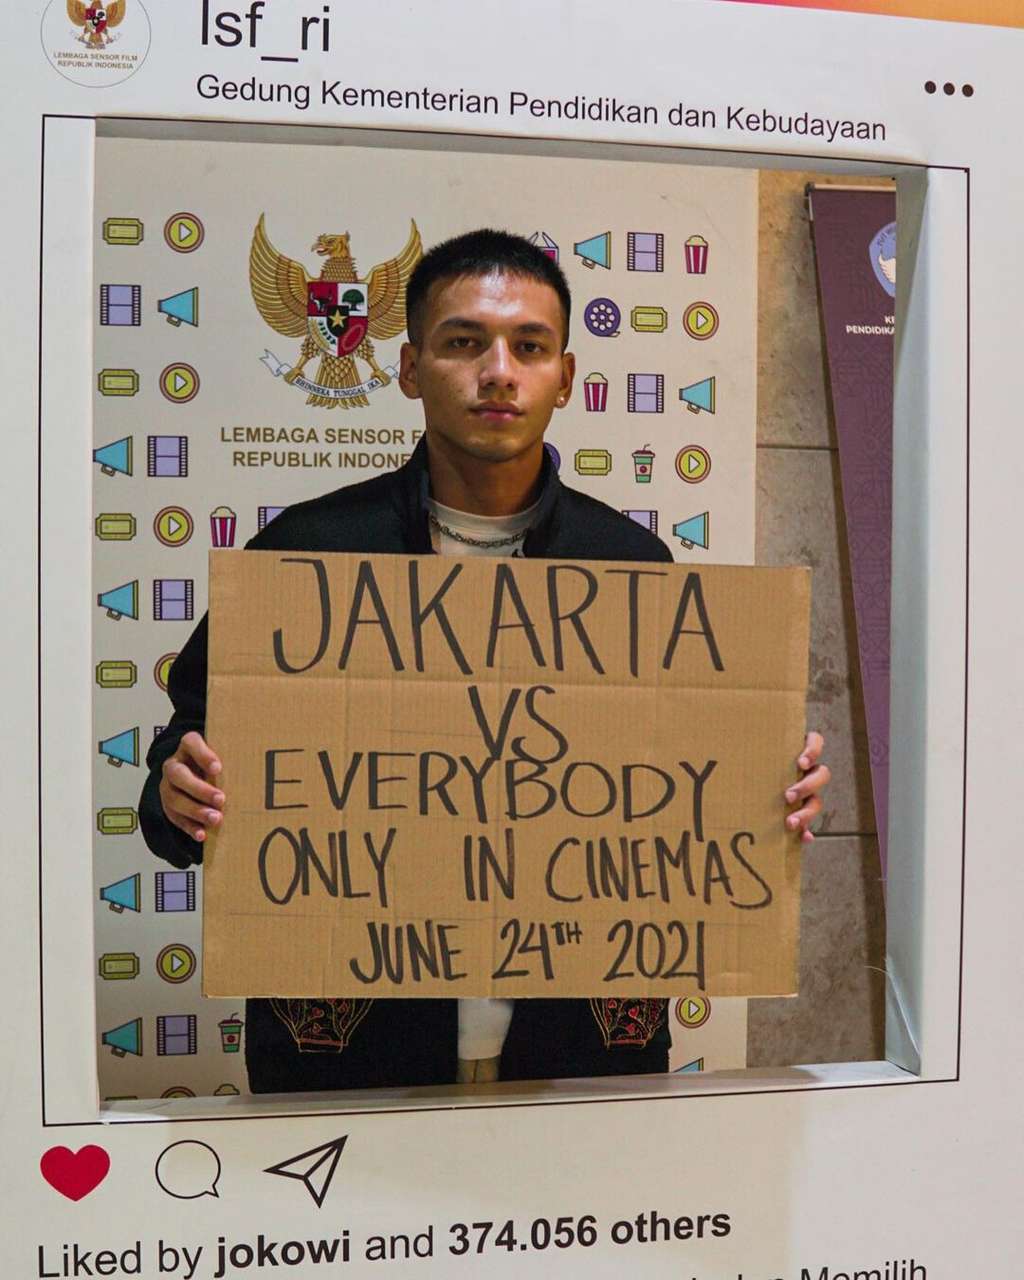 lsf_ri
LEMBAGA SENSOR FILM
REPUBLIK INDONESIA
Gedung Kementerian Pendidikan dan Kebudayaan
BHINNEKA TUNGGAL IKA
LEMBAGA SENSOR F
REPUBLIK INDONE
KE
PENDIDIKA
JAKARTA
VS
EVERYBODY
ONLY IN CINEMAS
JUNE 24TH 2021
Liked by jokowi and 374.056 others
Memilih